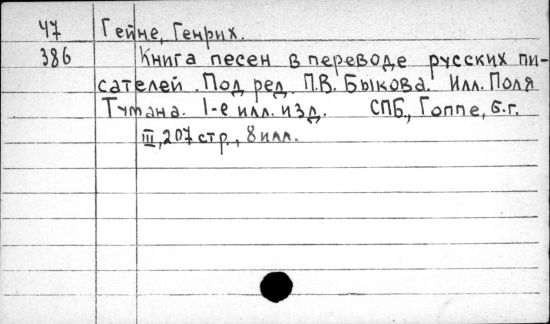 47 Гейне, Генрих.
386 Книга песен в переводе русских пи-
сателей. Под ред. П.В. Быкова. Илл. Поля
Тумана. 1-е илл. изд. СПБ., Гоппе, б.г.
III, 207 стр., 8 илл.